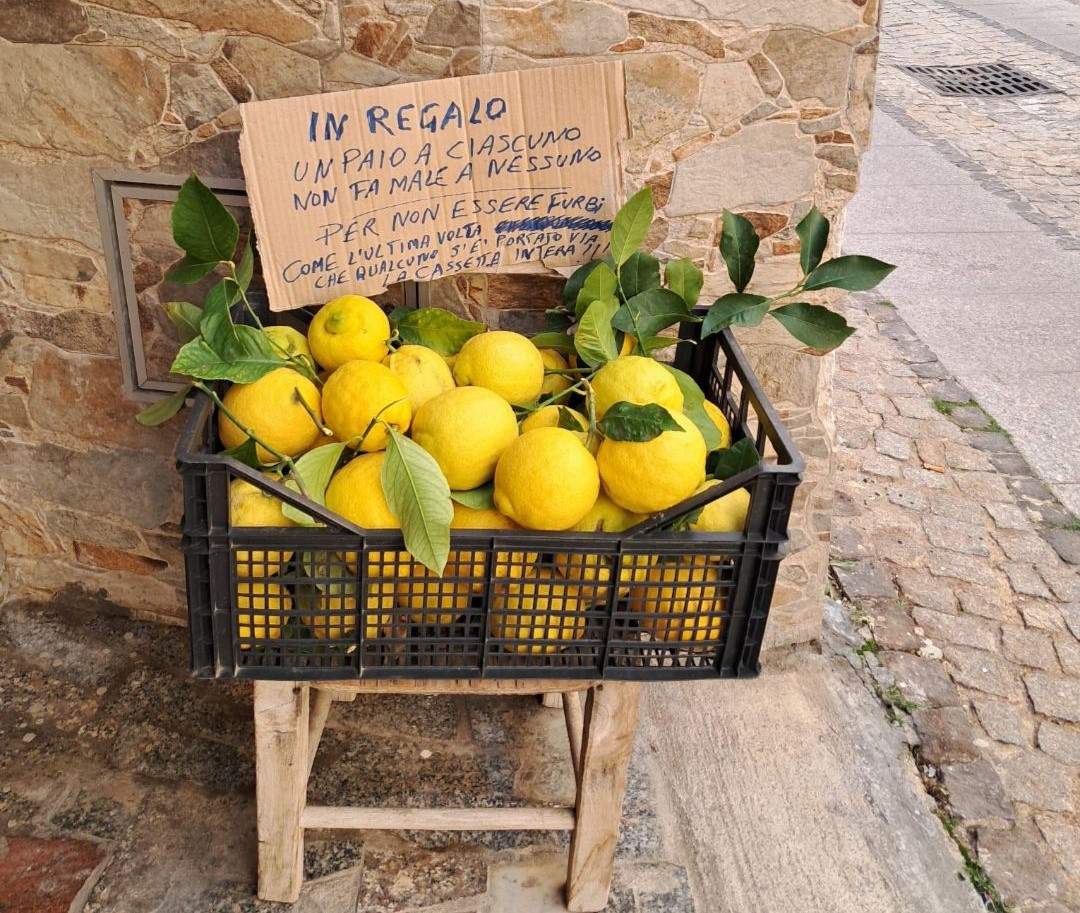 IN REGALO
UN PAIO A CIASCUNO
NON FA MALE A NESSUNO
PER NON ESSERE FURBI
COME L'ULTIMA VOLTA
CHE QUALCUNO S'E' PORTATO VIA
LA CASSETTA INTERA!!!